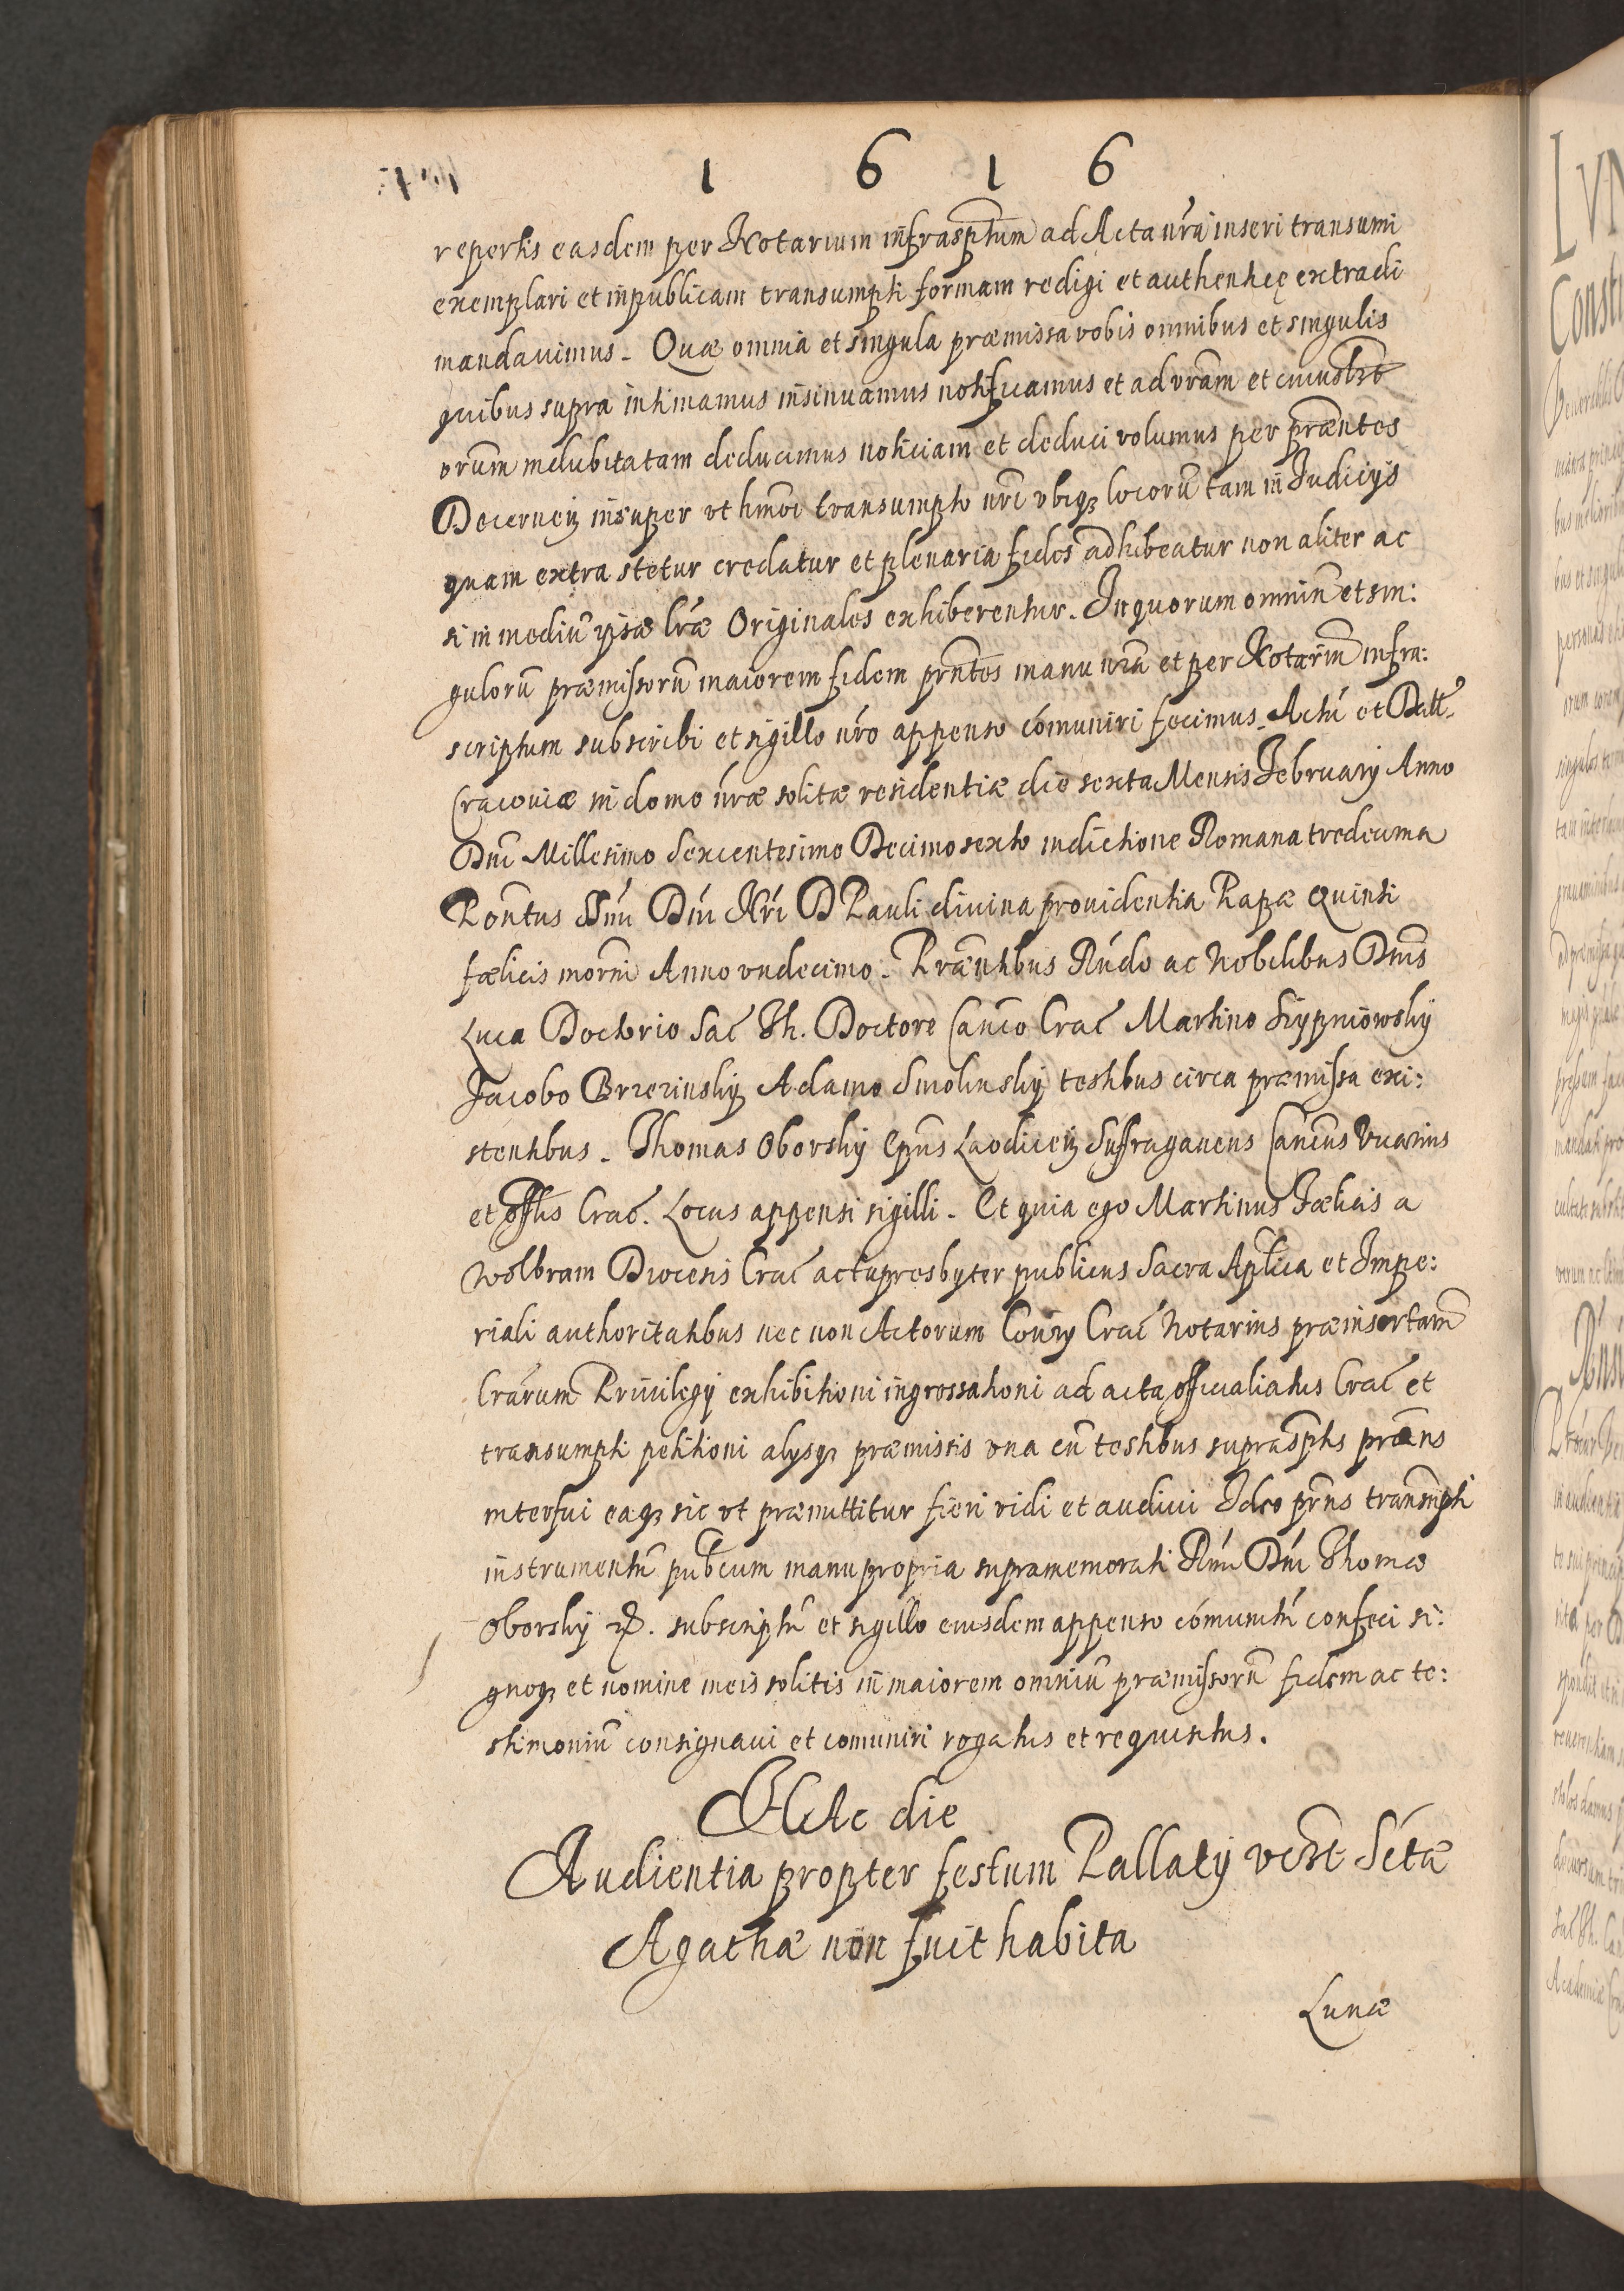 1 6 1 6
repertis easdem per Notarium infrasptum ad Acta nra inseri transumi
exemplari et in publicam transumpti formam redigi et authentice extradi
mandauimus. Quæ omnia et singula præmissa vobis omnibus et singulis
quibus supra intimamus insinuamus notificamus et ad vram et cuiuslibet
orum indubitatam deducimus noticiam et deduci volumus per præntes
Decernen insuper vt hmoi transumpto nro vbiq locorū tam in Iudicijs
quam extra stetur credatur et plenaria fides adhibeatur non aliter ac
si in mediū ipsæ lræ Originales exhiberentur. In quorum omniū et sin:
gulorū præmissorū maiorem fidem prntes manu nra et per Notariū infra:
scriptum subscribi et sigillo nro appenso cómuniri fecimus. Actū et Datt
Cracouiæ in domo nræ solitæ residentiæ die sexta Mensis Februarij Anno
Dni Millesimo Sexcentesimo Decimo sexto indictione Romana tredecima
Pontus Smi Dni Nri D Pauli diuina prouidentia Papæ Quinti
fælicis morni Anno vndecimo. Præntibus Rndo ac Nobilibus Dnis
Luca Doctorio Sac Th. Doctore Canco Crac Martino
Jacobo Brzezinskij Adamo Smolinskij testibus circa præmissa exi:
stentibus. Thomas Oborskij Epus Laodicen Suffraganeus Cancus Vicarius
et Offlis Crac. Locus appensi sigilli. Et quia ego Martinus Fælicis a
Wolbram Diocesis Crac actu presbyter publicus Sacra Aplica et Impe:
riali authoritatibus nec non Actorum Conrij Crac Notarius præinsertam
lrarum Priuilegij exhibitioni ingrossationi ad acta officialatus Crac et
transumpti petitioni alijsq præmissis vna cū testibus suprasptis præns
interfui eaq sic vt præmittitur fieri vidi et audiui Ideo prns transmpti
instrumentū publcum manu propria supramemorati Rmi Dni Thomæ
Oborskij &. subscriptū et sigillo eiusdem appenso cómunitū confeci si:
gnoq et nomine meis solitis in maiorem omniū præmissorū fidem ac te:
stimoniū consignaui et comuniri rogatus et requisitus.
HAc die
Audientia propter festum Pallatij vert Sctæ
Agathæ non fuit habita
Lunæ